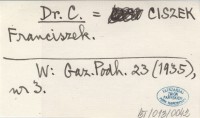 Dr. C. = CISZEK
Franciszek.
W: Gaz. Podh. 23 (1935),
nr 3.